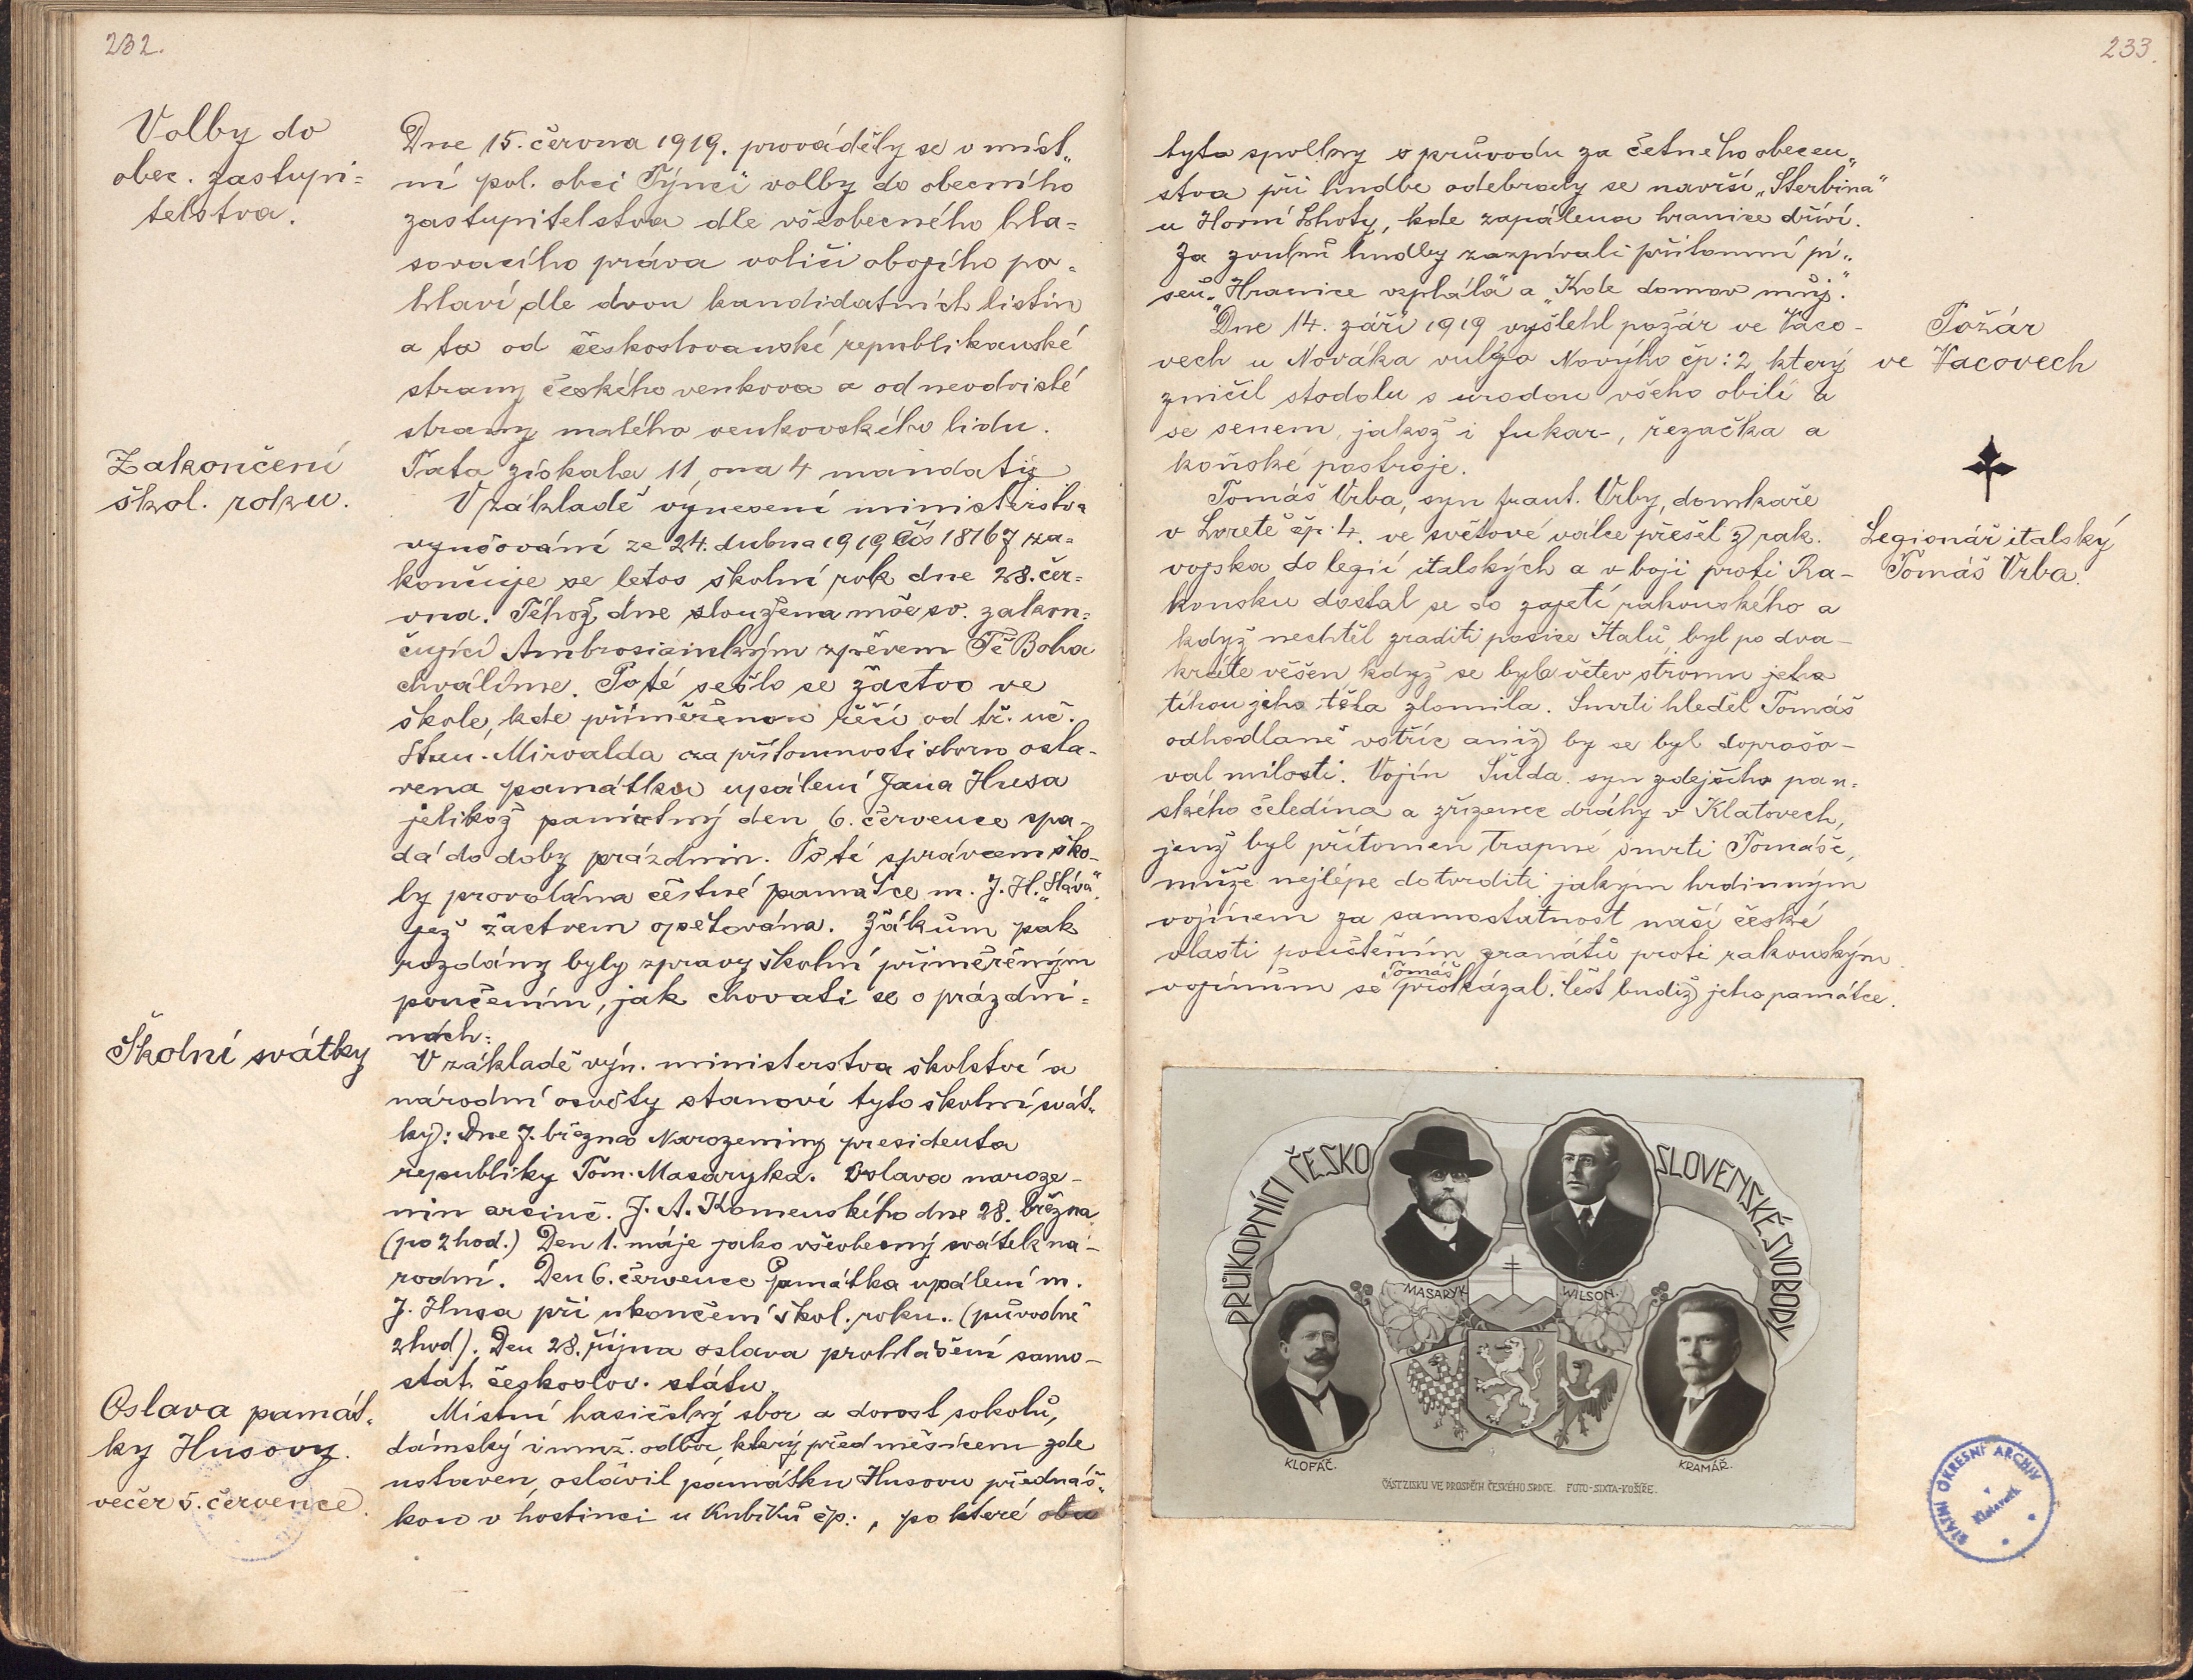 232.
Volby do
obec. zastupi=
telstva.
Dne 15. června 1919. prováděly se v míst„
ní pol. obci Týnci volby do obecního
zastupitelstva dle všeobecného hla=
sovacího práva voliči obojího po=
hlaví dle dvou kandidatních listin
a to od českoslovanské republikanské
strany českého venkova a od neodvislé
strany malého venkovského lidu.
Zakončení
škol. roku.
Tato získala 11, ona 4 mandaty
V základě vynesení ministerstva
vyučování ze 24. dubna 1919 Čís 18167 za=
končuje se letos školní rok dne 28. čer=
vna. Téhož dne sloužena mše sv. zakon=
čující Ambrosianským zpěvem Tě Boha
chválíme. Poté sešlo se žáctvo ve
škole, kde přiměřenou řečí od tř. uč.
Stan. Mirvalda za přítomnosti sboru osla-
vena památka upálení Jana Husa
jelikož památný den 6. července spa-
dá do doby prázdnin. Poté správcem ško-
ly provolána čestné památce m. J. H. „Sláva“
jež žactvem opětována. Žákům pak
rozdány byly zpravy školní přiměřeným
poučením, jak chovati se o prázdni=
nách.
Školní svátky
V základě výn. ministerstva školství a
národní osvěty stanoví tyto školní svát„
ky: Dne 7. března Narozeniny presidenta
republiky Tom. Masaryka. Oslava naroze-
nin J. A. Komenského dne 28. března
(po 2 hod.) Den 1. máje jako všeobecný svátek ná-
rodní. Den 6. července Památka upálení m.
J. Husa při ukončení škol. roku. (původně
2 hod). Den 28. října oslava prohlášení samo-
stat. českoslov. státu
Oslava památ„
ky Husovy.
večer 5. července.
Místní hasičský sbor a dorost sokolů,
dámský i muž. odbor, který před měsícem zde
ustaven, oslavil památku Husovu přednáš„
kou v hostinci u Kubíků čp: , po které
233.
tyto spolky v průvodu za četného obecen„
stva při hudbe odebraly se navrší „Sterbina“
u Horní Lhoty, kde zapálena hranice dříví.
Za zvuků hudby zazpívali přítomní pí„
seň „Hranice vzplála“ a „Kde domov můj“.
Dne 14. září 1919 vyšlehl požár ve Vaco-
vech u Nováka vulgo Novýho čp: 2, který
zničil stodolu s urodou všeho obilí a
se senem, jakož i fukar-, řezačka a
koňské postroje.
Požár
ve Vacovech
Tomáš Vrba, syn Frant. Vrby, domkaře
v Loretě čp. 4. ve světové válce přešel z rak.
vojska do legií italských a v boji proti Ra-
kousku dostal se do zajetí rakouského a
když nechtěl zraditi posice Italů, byl po dva-
kráte věšen když se byla větev stromu
tíhou jeho těla zlomila. Smrti hleděl Tomáš
odhodlaně vstříc aniž by se byl doprošo-
val milosti. Vojín Šulda syn zdejšího pan=
ského čeledína a zřízence dráhy v Klatovech,
jenž byl přítomen trapné smrti Tomáše,
může nejlépe dotvrditi jakým hrdinným
vojínem za samostatnost naší české
vlasti granátů proti rakouským
vojínům se Tomáš prokázal. Čest budiž jeho památce.
Legionář italský
Tomáš Vrba.
PRŮKOPNÍCI ČESKO SLOVENSKÉ SVOBODY
MASARYK.
WILSON.
KLOFÁČ.
KRAMÁŘ.
ČÁST ZISKU VE PROSPĚCH ČESKÉHO SRDCE. FOTO-SIXTA-KOŠÍŘE.
STÁTNÍ OKRESNÍ ARCHIV
v
Klatovech